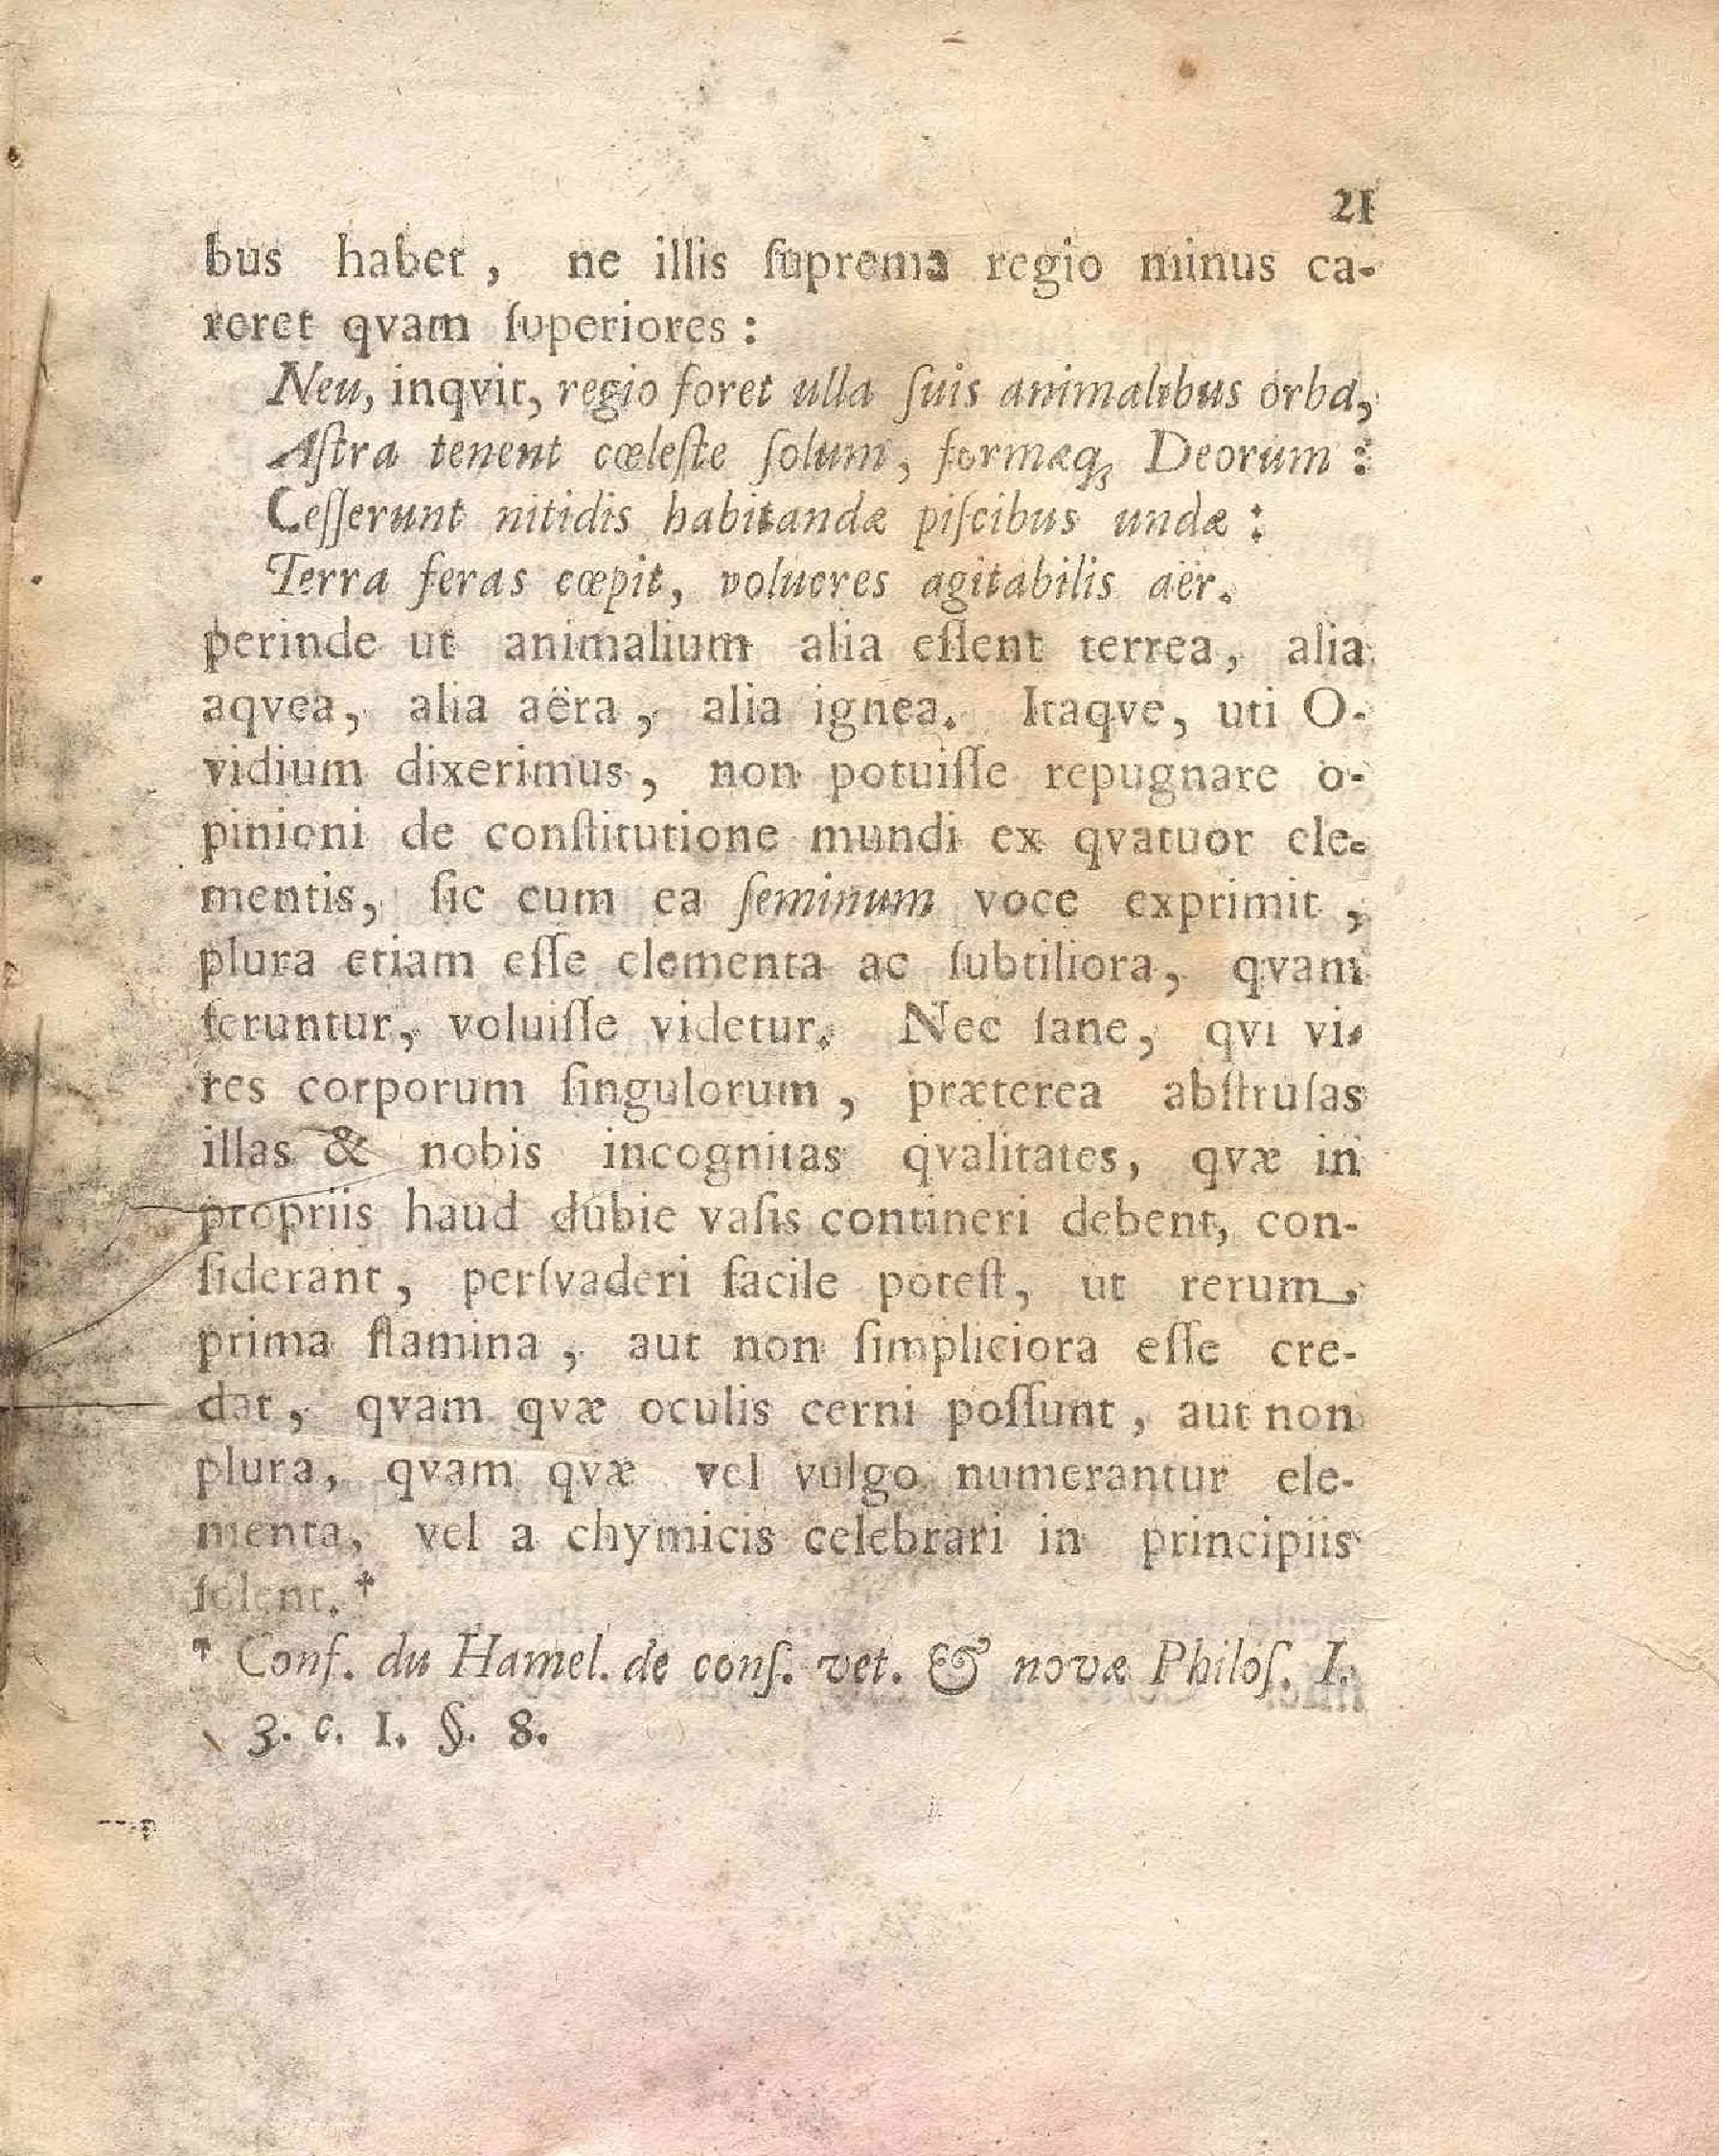 21
bus habet, ne illis ſuprema regio minus ca-
reret qvam ſuperiores:
Neu, inqvit, regio foret ulla ſuis animalibus orba,
Aſtra tenent cœleſte ſolum, formæqꝫ Deorum:
Ceſſerunt nitidis habitandæ piſcibus undæ:
Terra feras cœpit, volucres agitabilis aër.
perinde ut animalium alia eſſent terrea, alia
aqvea, alia aëra, alia ignea. Itaqve, uti O-
vidium dixerimus, non potuiſſe repugnare o-
pinioni de conſtitutione mundi ex qvatuor ele-
mentis, ſic cum ea ſeminum voce exprimit,
plura etiam eſſe elementa ac ſubtiliora, qvam
feruntur, voluiſſe videtur. Nec ſane, qvi vi-
res corporum ſingulorum, præterea abſtruſas
illas & nobis incognitas qvalitates, qvæ in
propriis haud dubie vaſis contineri debent, con-
ſiderant, perſvaderi facile poteſt, ut rerum
prima ſtamina, aut non ſimpliciora eſſe cre-
dat, qvam qvæ oculis cerni poſſunt, aut non
plura, qvam qvæ vel vulgo numerantur ele-
menta, vel a chymicis celebrari in principiis
ſolent.*
* Conf. du Hamel. de conſ. vet. & novæ Philoſ. I.
3. c. I. §. 8.